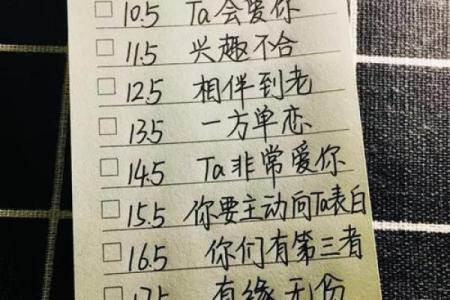 10.5 Ta会爱你
11.5 兴趣不合
12.5 相伴到老
13.5 一方单恋
14.5 Ta非常爱你
15.5 你要主动向Ta表白
16.5 你们有第三者
17.5 有缘无份